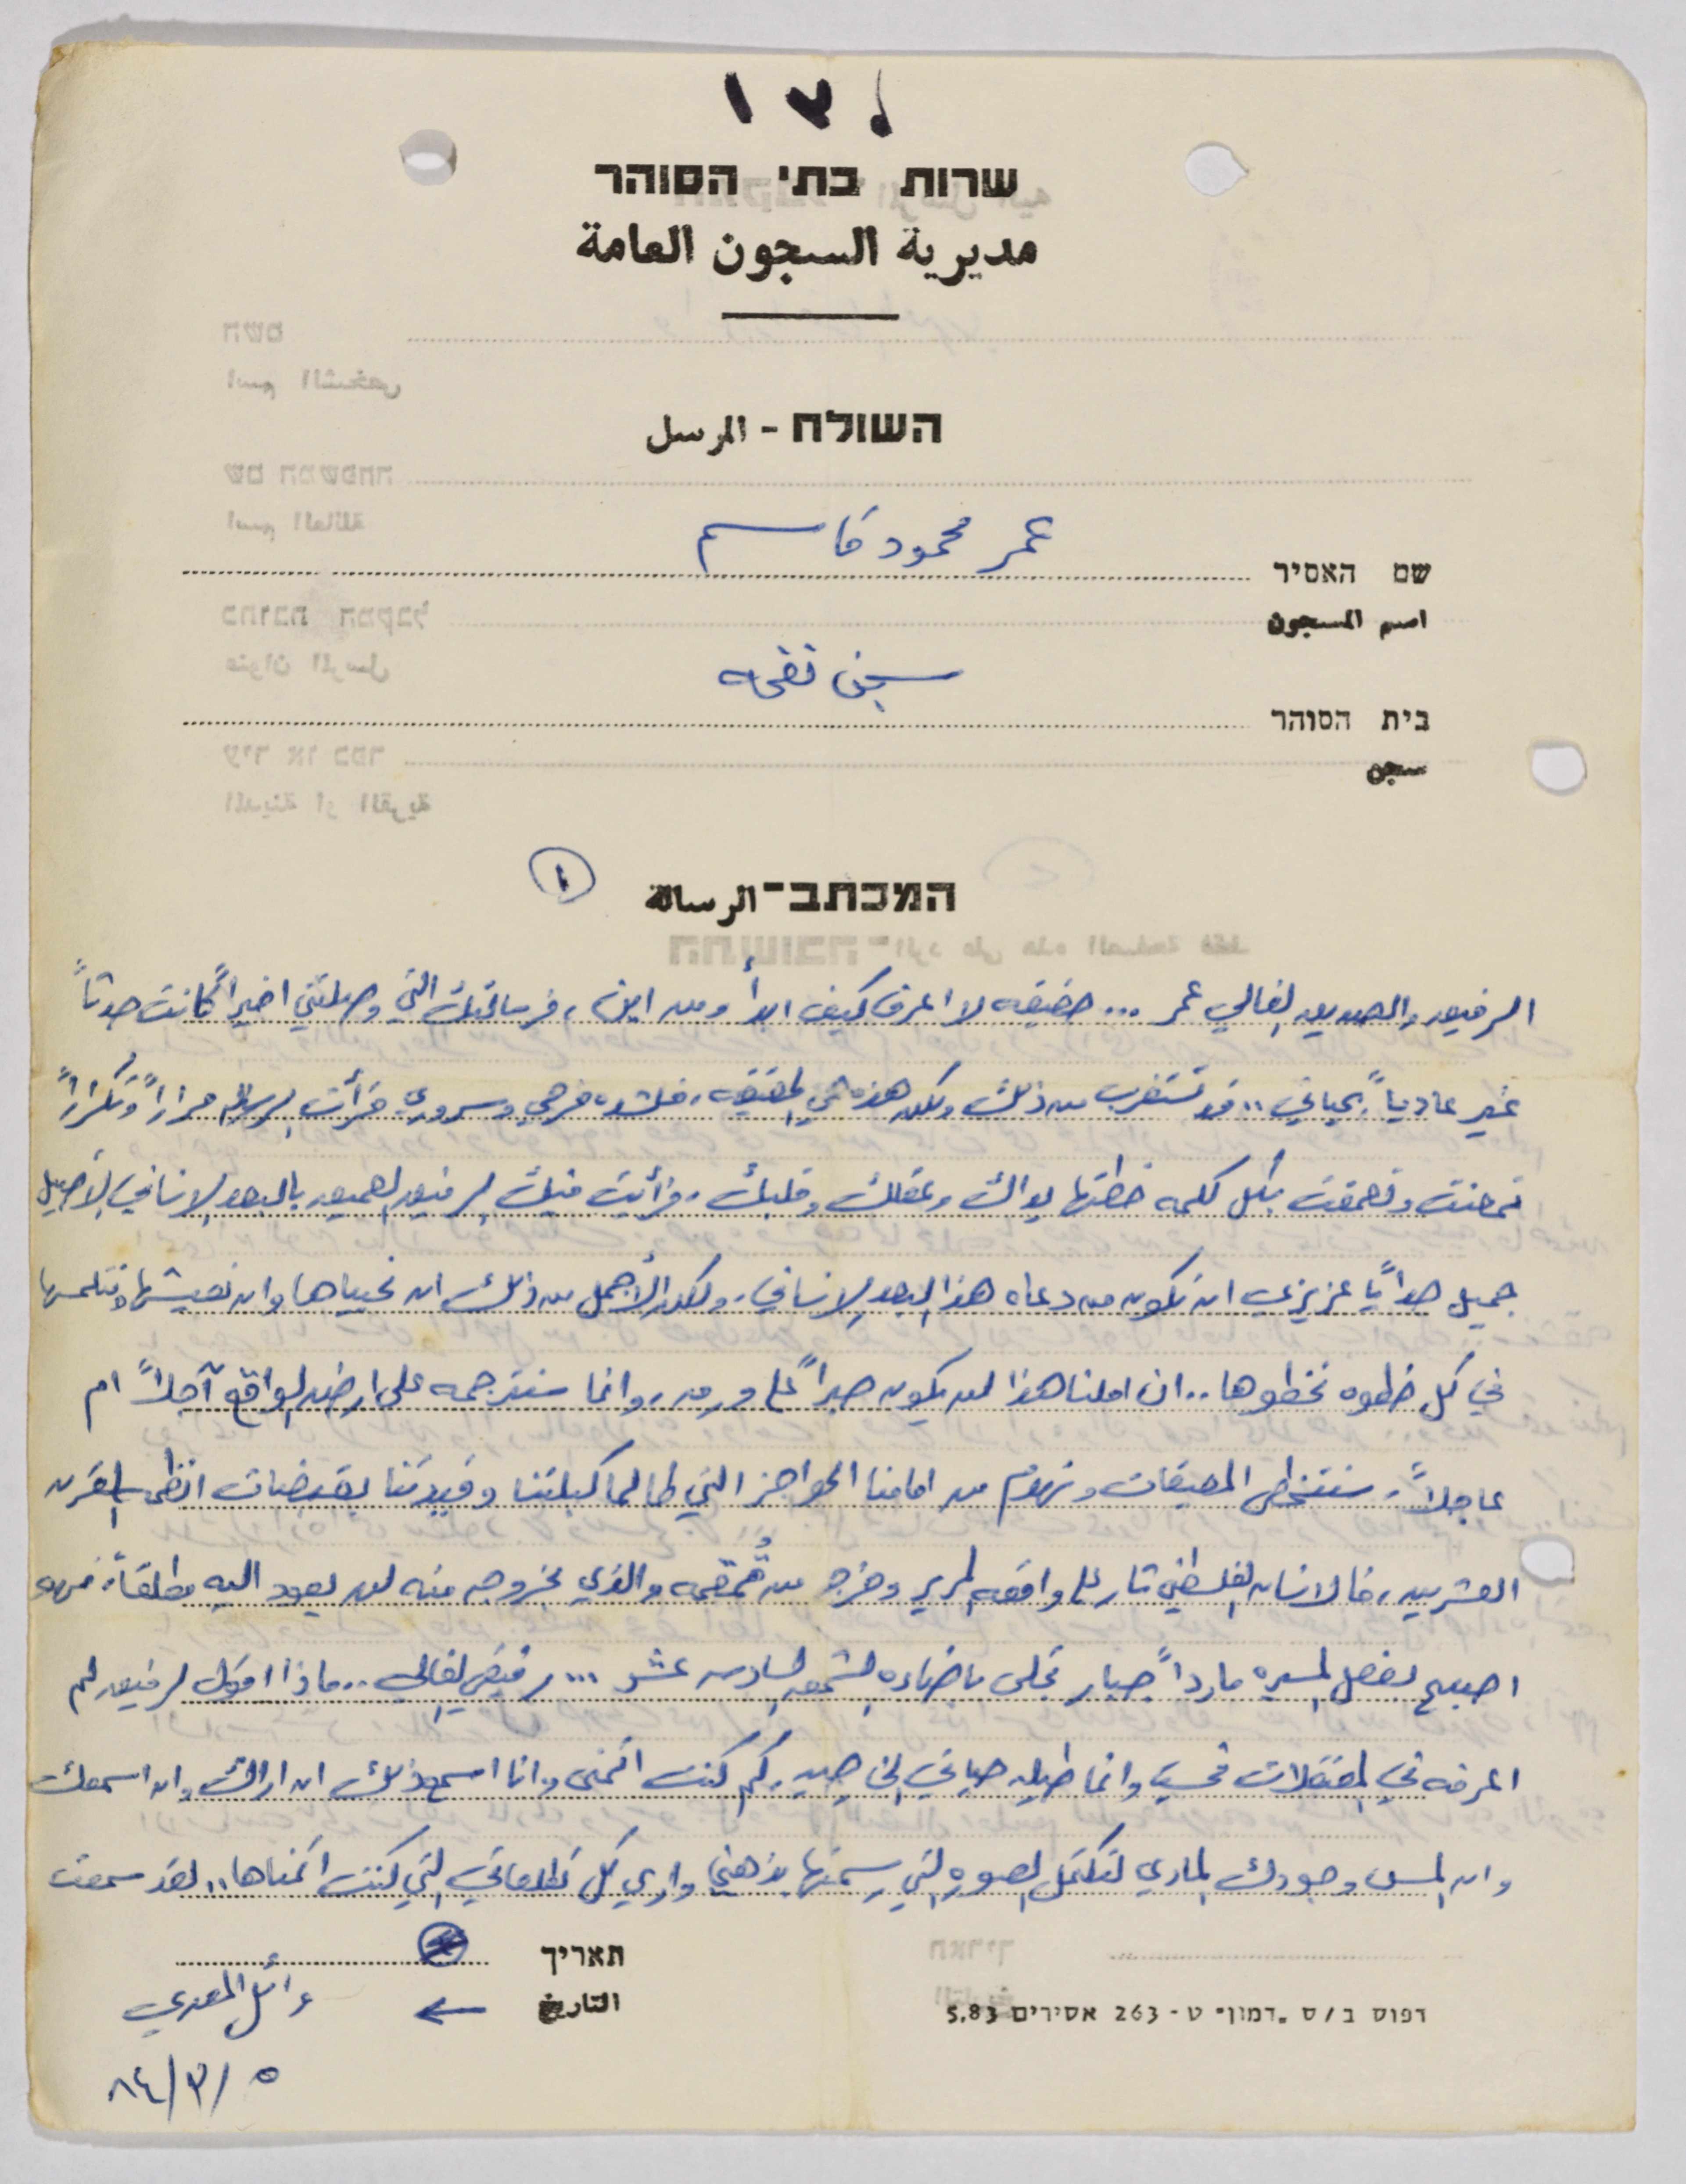 ١٣١
שרות בתי הסוהר
مديرية السجون العامة
השולח - المرسل
عمر محمود قاسم
שם האסיר
اسم المسجون
سجن نفحه
בית הסוהר
سجن
המכתב - الرسالة
١
الرفيق والصديق الغالي عمر ... حقيقه لا اعرف كيف ابدأ ومن اين، فرسالتك التي وصلتني اخيراً كانت حدثاً
غير عادياً بحياتي .. قد تستغرب من ذلك ولكن هذه هي الحقيقه، فلشده فرحي وسروري قرأت الرساله مراراً وتكراراً
تمعنت وتعمقت بكل كلمه خطتها يداك وعقلك وقلبك، فرأيت فيك الرفيق العميق بالبعد الانساني الأصيل
جميل جداً يا عزيزي ان نكون من دعاه هذا البعد الانساني، ولكن الأجمل من ذلك ان نحياها وان نعيشها ونتلمسها
في كل خطوه نخطوها .. ان املنا هذا لن يكون حبراً على ورق، وانما سنترجمه على ارضيه الواقع آجلاً ام
عاجلاً، سنتخطى المعيقات ونهزم من امامنا الحواجز التي طالما كبلتنا وقيدتنا بقبضات القرن
العشرين، فالانسان الفلسطيني ثار على واقعه المرير وخرج من قمقمه والذي بخروجه منه لن يعود اليه مطلقاً، فهو
اصبح بفضل المسيره مارداً جبار تجلى باضاءه الشمعه السادسه عشر ... رفيقي الغالي .. ماذا اقول لرفيق لم
اعرفه في المعتقلات فحسب وانما طيله حياتي الى حين، كم كنت اتمنى وانا اسمع ذلك ان اراك وان اسمعك
وان المس وجودك المادي لتكتمل الصوره التي رسمتها بذهني وارى كل تطلعاتي التي كنت اتمناها .. لقد سمعت
תאריך
التاريخ
←
وائل
٥/٣/٨٤
דפוס ב/ס .דמון- ט - 263 אסירים 5.83